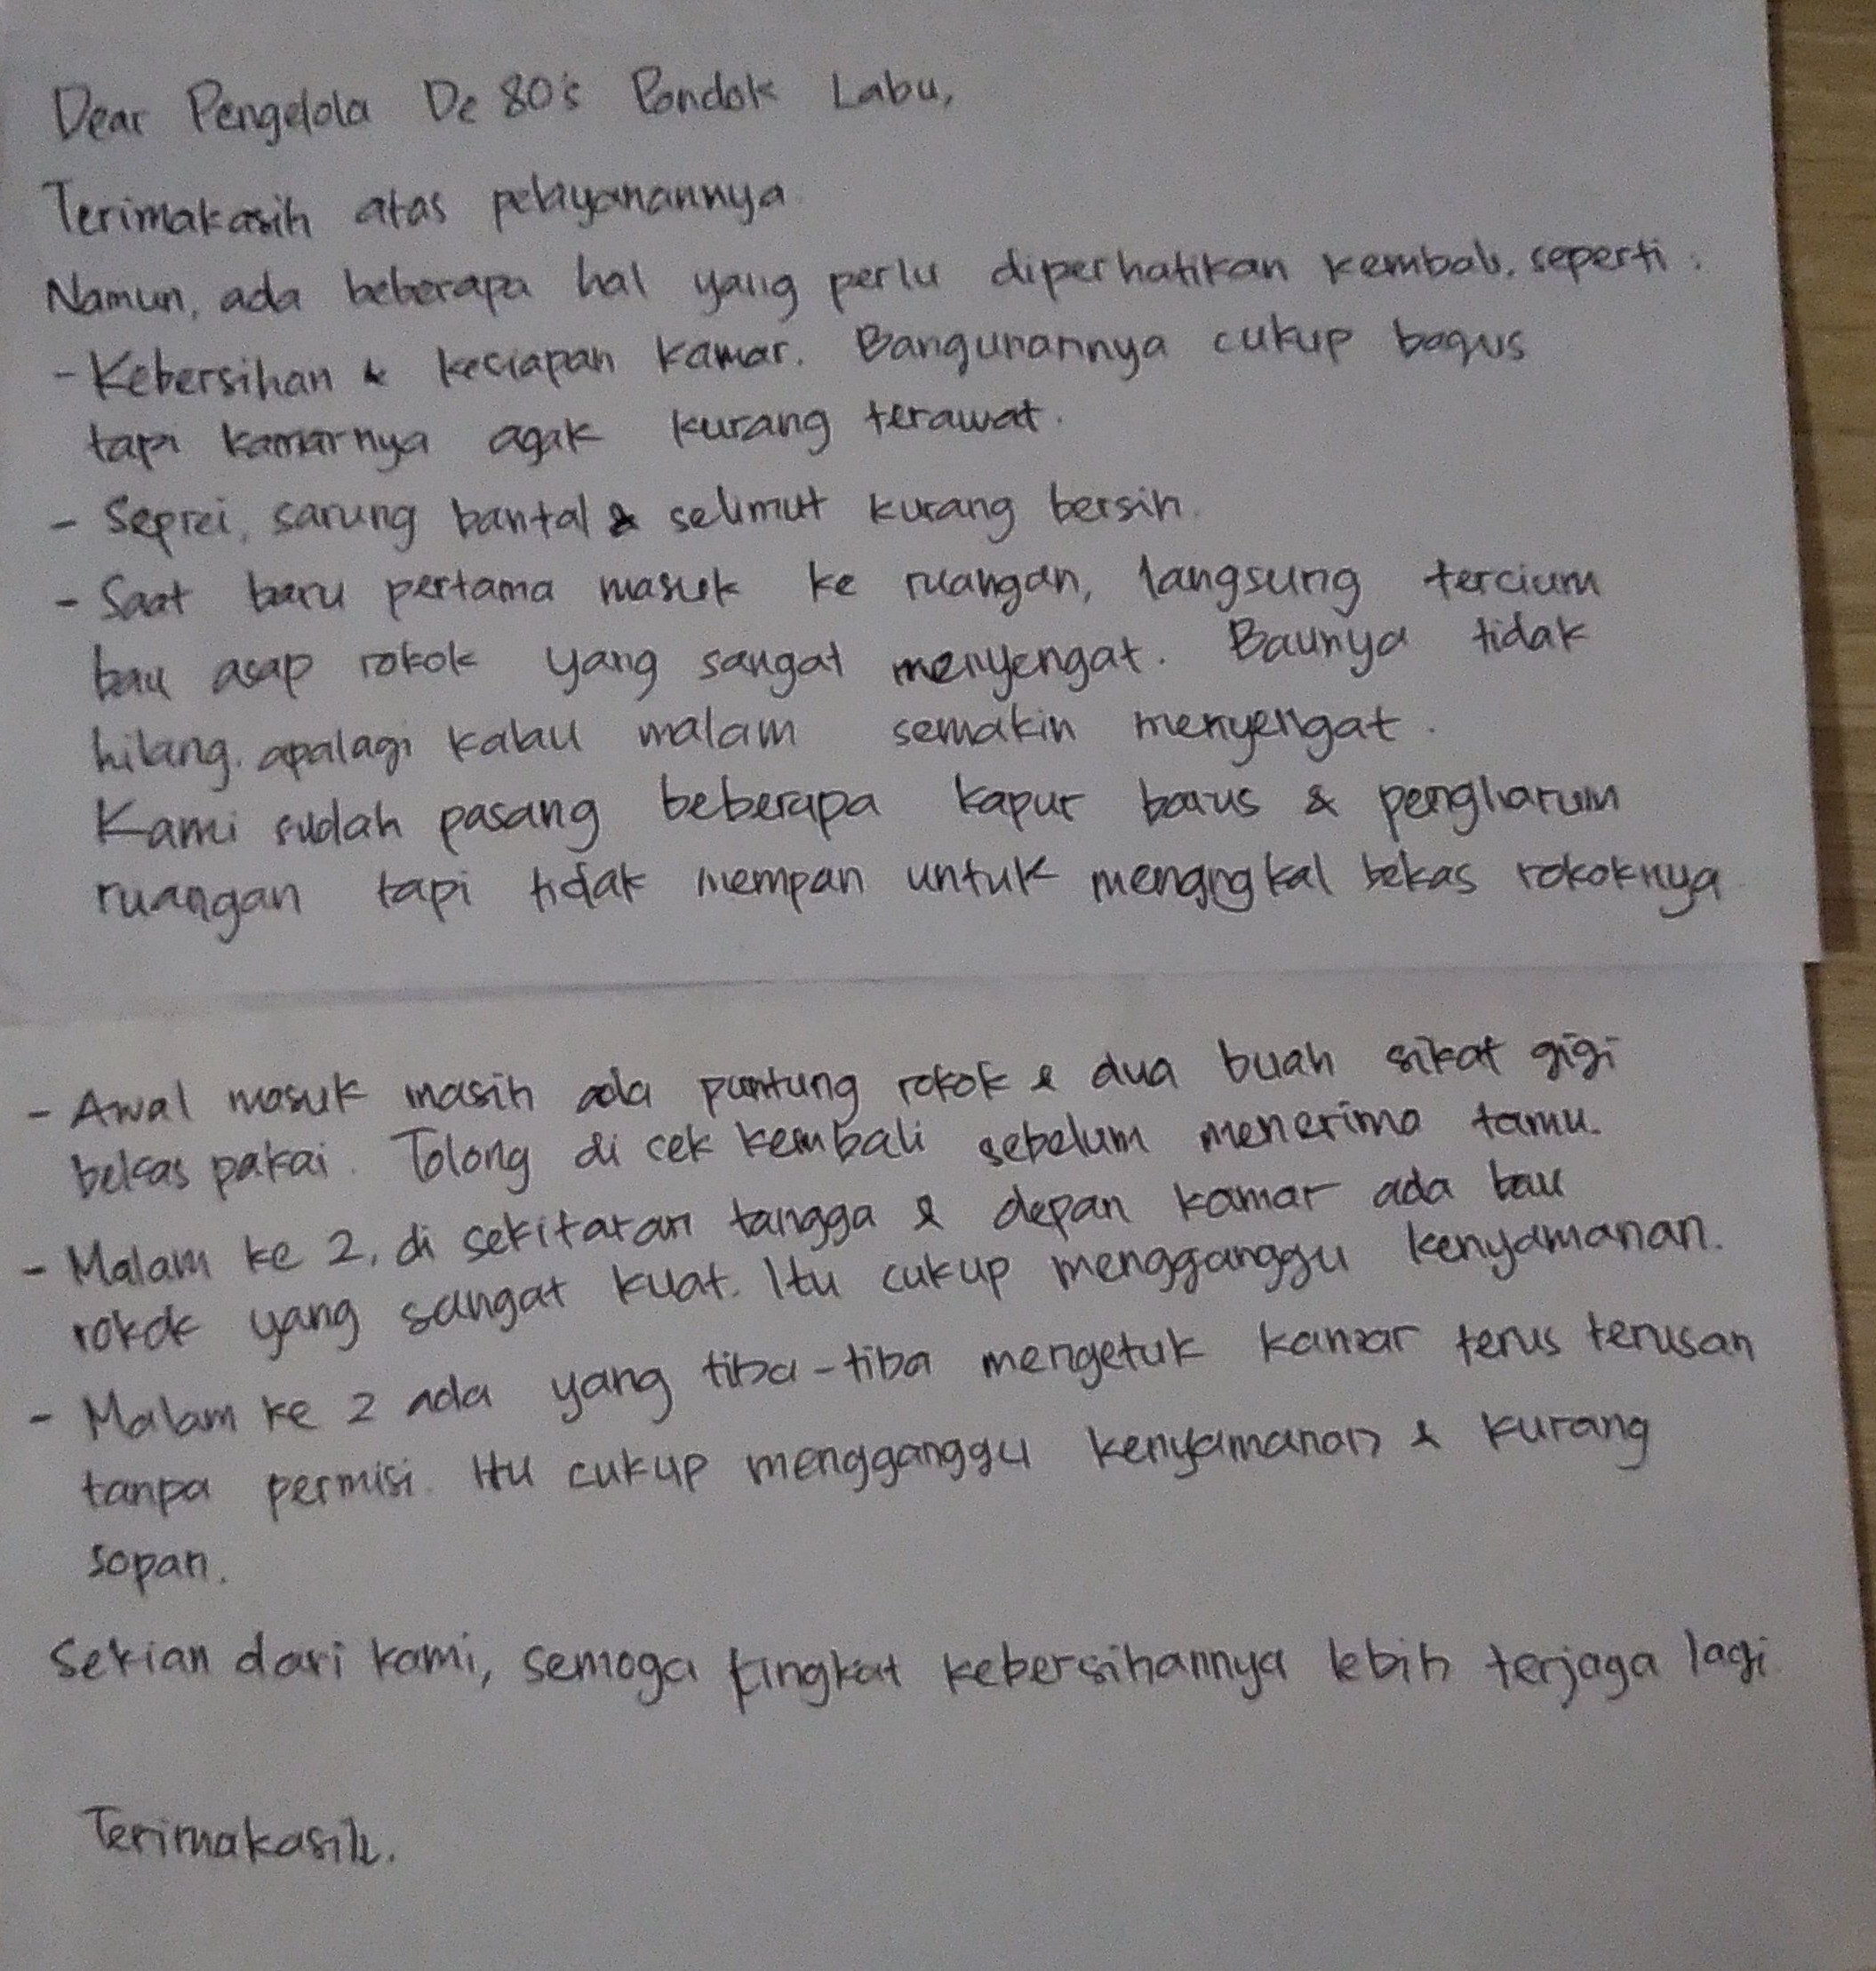 Dear Pengelola De 80's Pondok Labu,
Terimakasih atas pelayanannya.
Namun, ada beberapa hal yang perlu diperhatikan kembali, seperti :
- Kebersihan & kesiapan kamar. Bangunannya cukup bagus
tapi kamarnya agak kurang terawat.
- Seprei, sarung bantal & selimut kurang bersih.
- Saat baru pertama masuk ke ruangan, langsung tercium
bau asap rokok yang sangat menyengat. Baunya tidak
hilang, apalagi kalau malam semakin menyengat.
Kami sudah pasang beberapa kapur barus & pengharum
ruangan tapi tidak mempan untuk menangkal bekas rokoknya
- Awal masuk masih ada puntung rokok & dua buah sikat gigi
bekas pakai. Tolong di cek kembali sebelum menerima tamu.
- Malam ke 2, di sekitaran tangga & depan kamar ada bau
rokok yang sangat kuat. Itu cukup mengganggu kenyamanan.
- Malam ke 2 ada yang tiba-tiba mengetuk kamar terus terusan
tanpa permisi. Itu cukup mengganggu kenyamanan & kurang
sopan.
Sekian dari kami, semoga tingkat kebersihannya lebih terjaga lagi
Terimakasih.